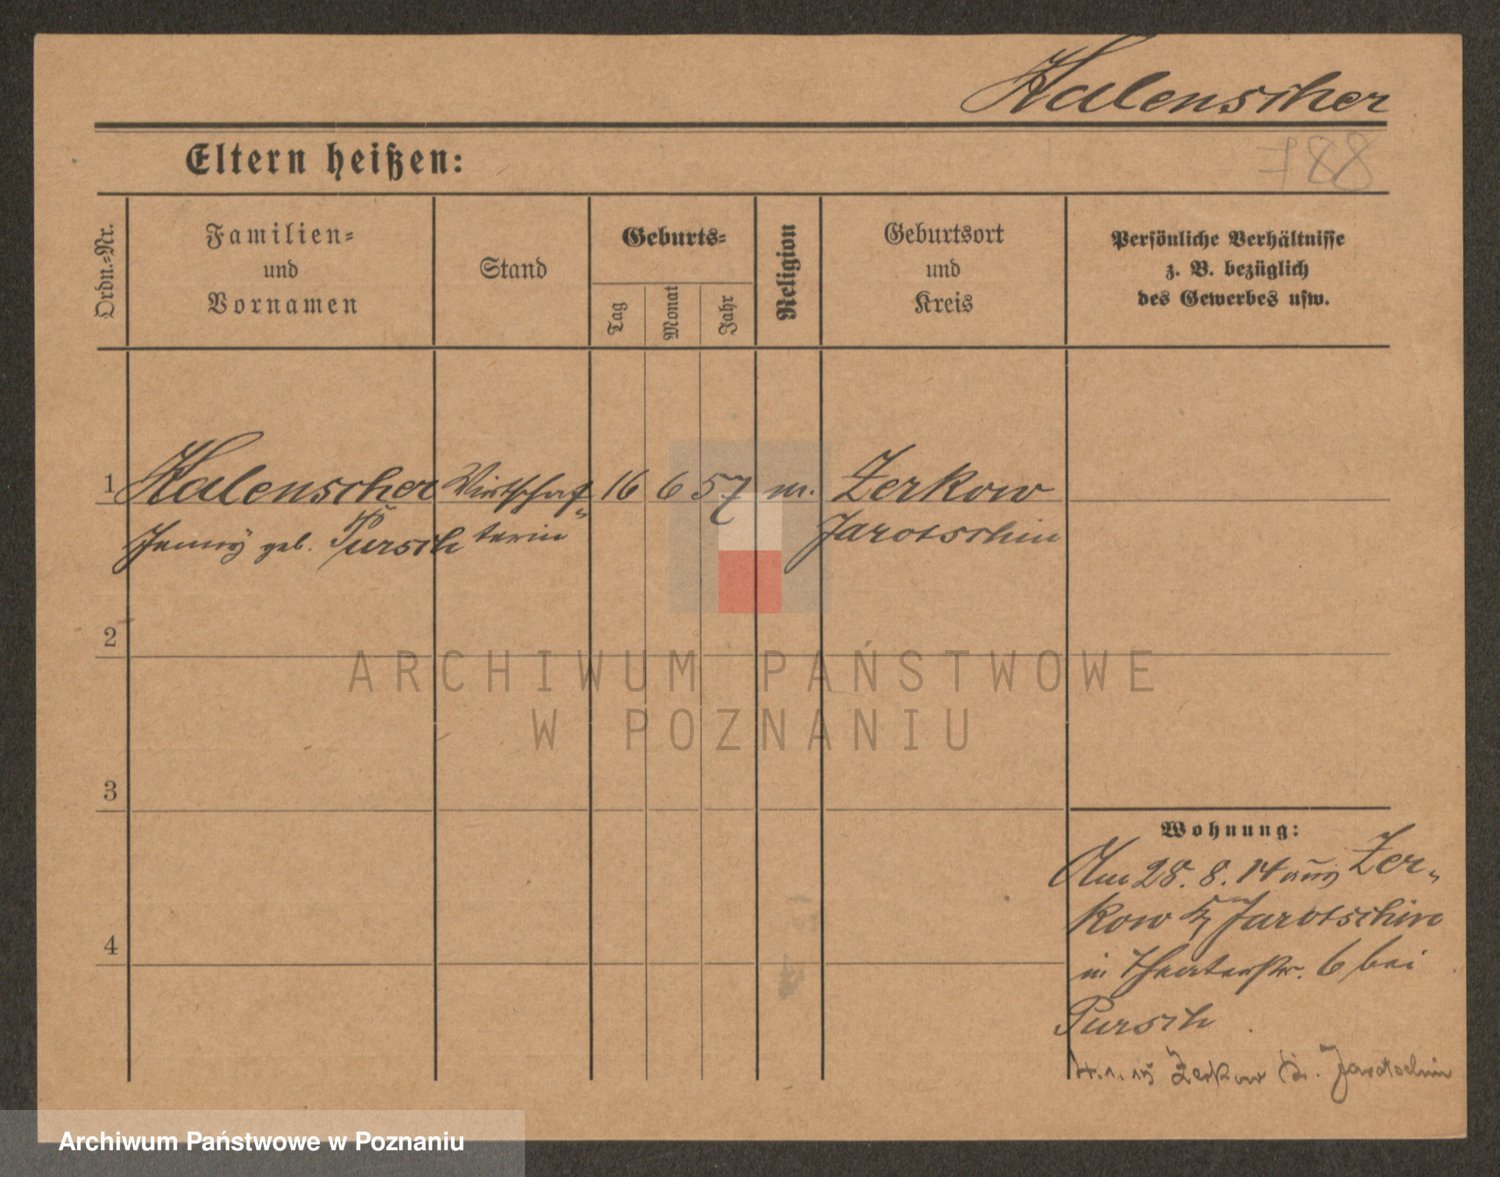 Halenscher
788
Eltern heißen:
Ordn.-Nr.
Familien-
und
Vornamen
Stand
Geburts-
Tag
Monat
Jahr
Religion
Geburtsort
und
Kreis
Persönliche Verhältnisse
z. B. bezüglich
des Gewerbes usw.
1 Halenscher Wirtschaf- 16 6 57 m. Zerkow
Jenny geb. Pursch terin Jarotschin
2
3
4
Wohnung:
Am 28. 8. 14 aus Zer-
kow Kr. Jarotschin
in Theaterstr. 6 bei
Pursch
4. 1. 15 Zerkow Kr. Jarotschin
ARCHIWUM PAŃSTWOWE
W POZNANIU
Archiwum Państwowe w Poznaniu